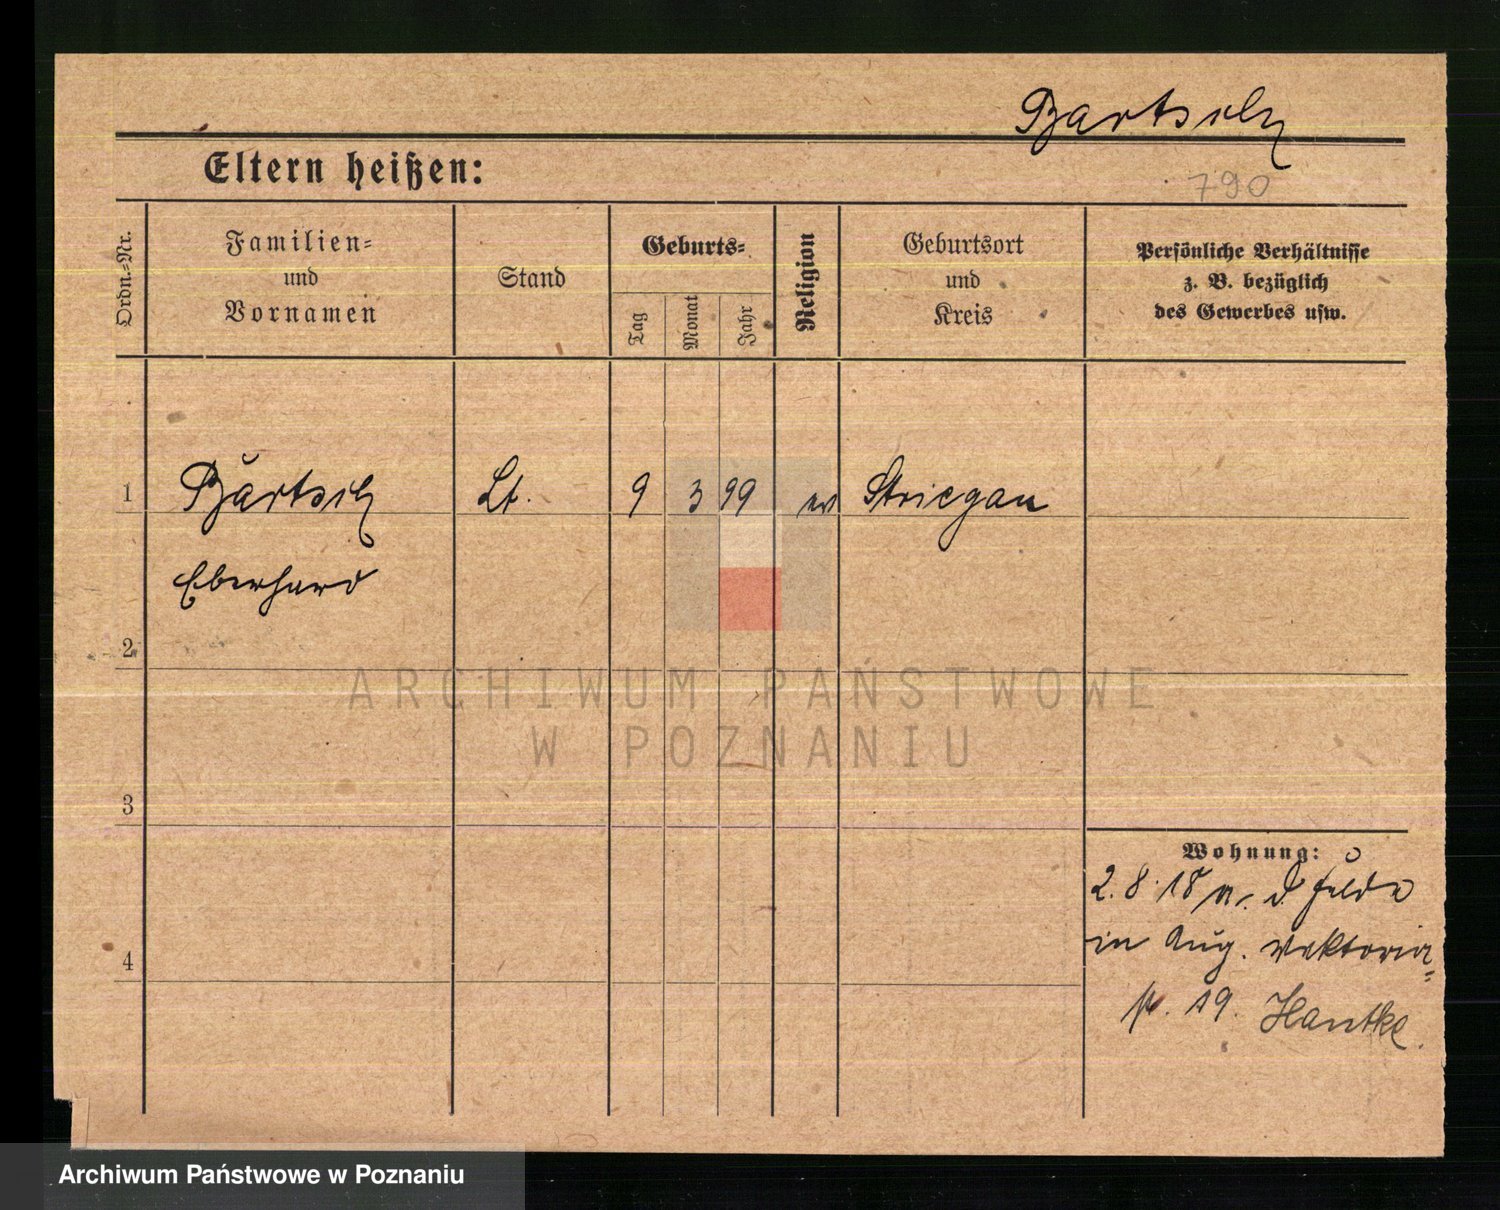 Bartsch
Eltern heißen:
790
Ordn.-Nr.
Familien-
und
Vornamen
Stand
Geburts-
Tag
Monat
Jahr
Religion
Geburtsort
und
Kreis
Persönliche Verhältnisse
z. B. bezüglich
des Gewerbes usw.
1
Bartsch Lt. 9 3 99 ev Striegau
Eberhard
2
3
4
Wohnung:
2. 8. 18 a. d. Felde
in Aug. Viktoria-
19. Hantke.
ARCHIWUM PAŃSTWOWE
W POZNANIU
Archiwum Państwowe w Poznaniu